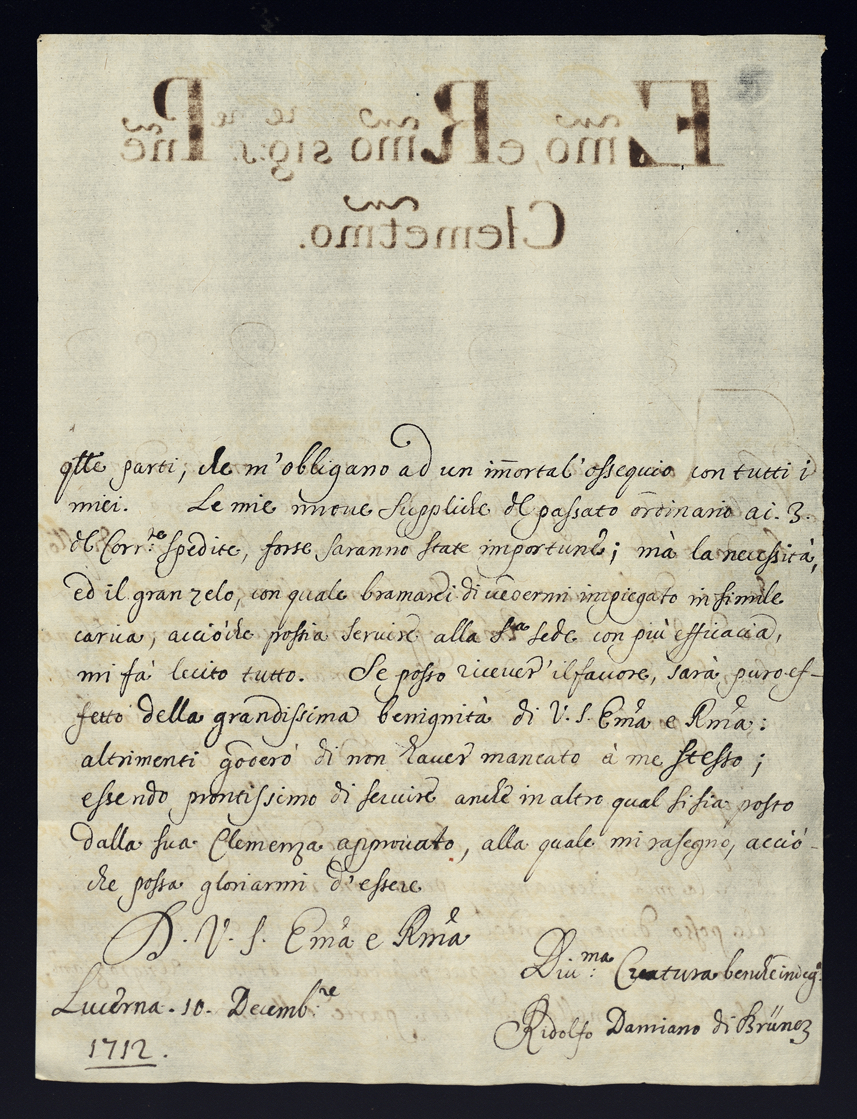 Emo, e Rmo sig:r, e Pne
Clemetmo.
qlle parti, che m'obbligano ad un im̄ortal' ossequio con tutti i
miei. Le mie nuove suppliche del passato ordinario ai. 3.
del Corr:te spedite, forse saranno state importune; mà la necessità,
ed il gran zelo, con quale bramarei di vedermi impiegato in simile
carica, acciòche possia servire alla Sta sede con più efficacia,
mi fà lecito tutto. Se posso ricever' il favore, sarà puro ef-
fetto della grandissima benignità di V. S. Emã e Rmã:
altrimenti goderò di non haver mancato à me stesso;
essendo prontissimo di servire anche in altro qual si sia posto
dalla sua Clemenza approuato, alla quale mi rasegno, acciò-
che possa gloriarmi d'essere
D. V. S. Emã e Rmã
Diu:ma Creatura benche indeg:
Lucerna. 10. Decemb:re
Ridolfo Damiano di
1712.